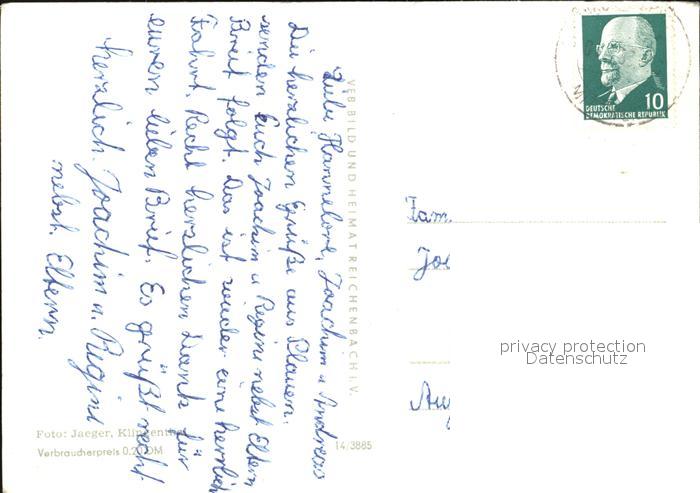 Liebe Hannelore, Joachim u Andreas
Die herzlichen Grüße aus Plauen.
senden Euch Joachim u Regine nebst Eltern
Brief folgt. Das ist wieder eine herrlich
Fahrt. Recht herzlichen Dank für
euren lieben Brief. Es grüßt recht
herzlich. Joachim u. Regine
nebst. Eltern.
VEB BILD UND HEIMAT REICHENBACH I. V.
Foto: Jaeger, Klingenthal
Verbraucherpreis 0,20 DM
14/3885
10
DEUTSCHE
DEMOKRATISCHE REPUBLIK
Fam.
Jo
privacy protection
Datenschutz
Au